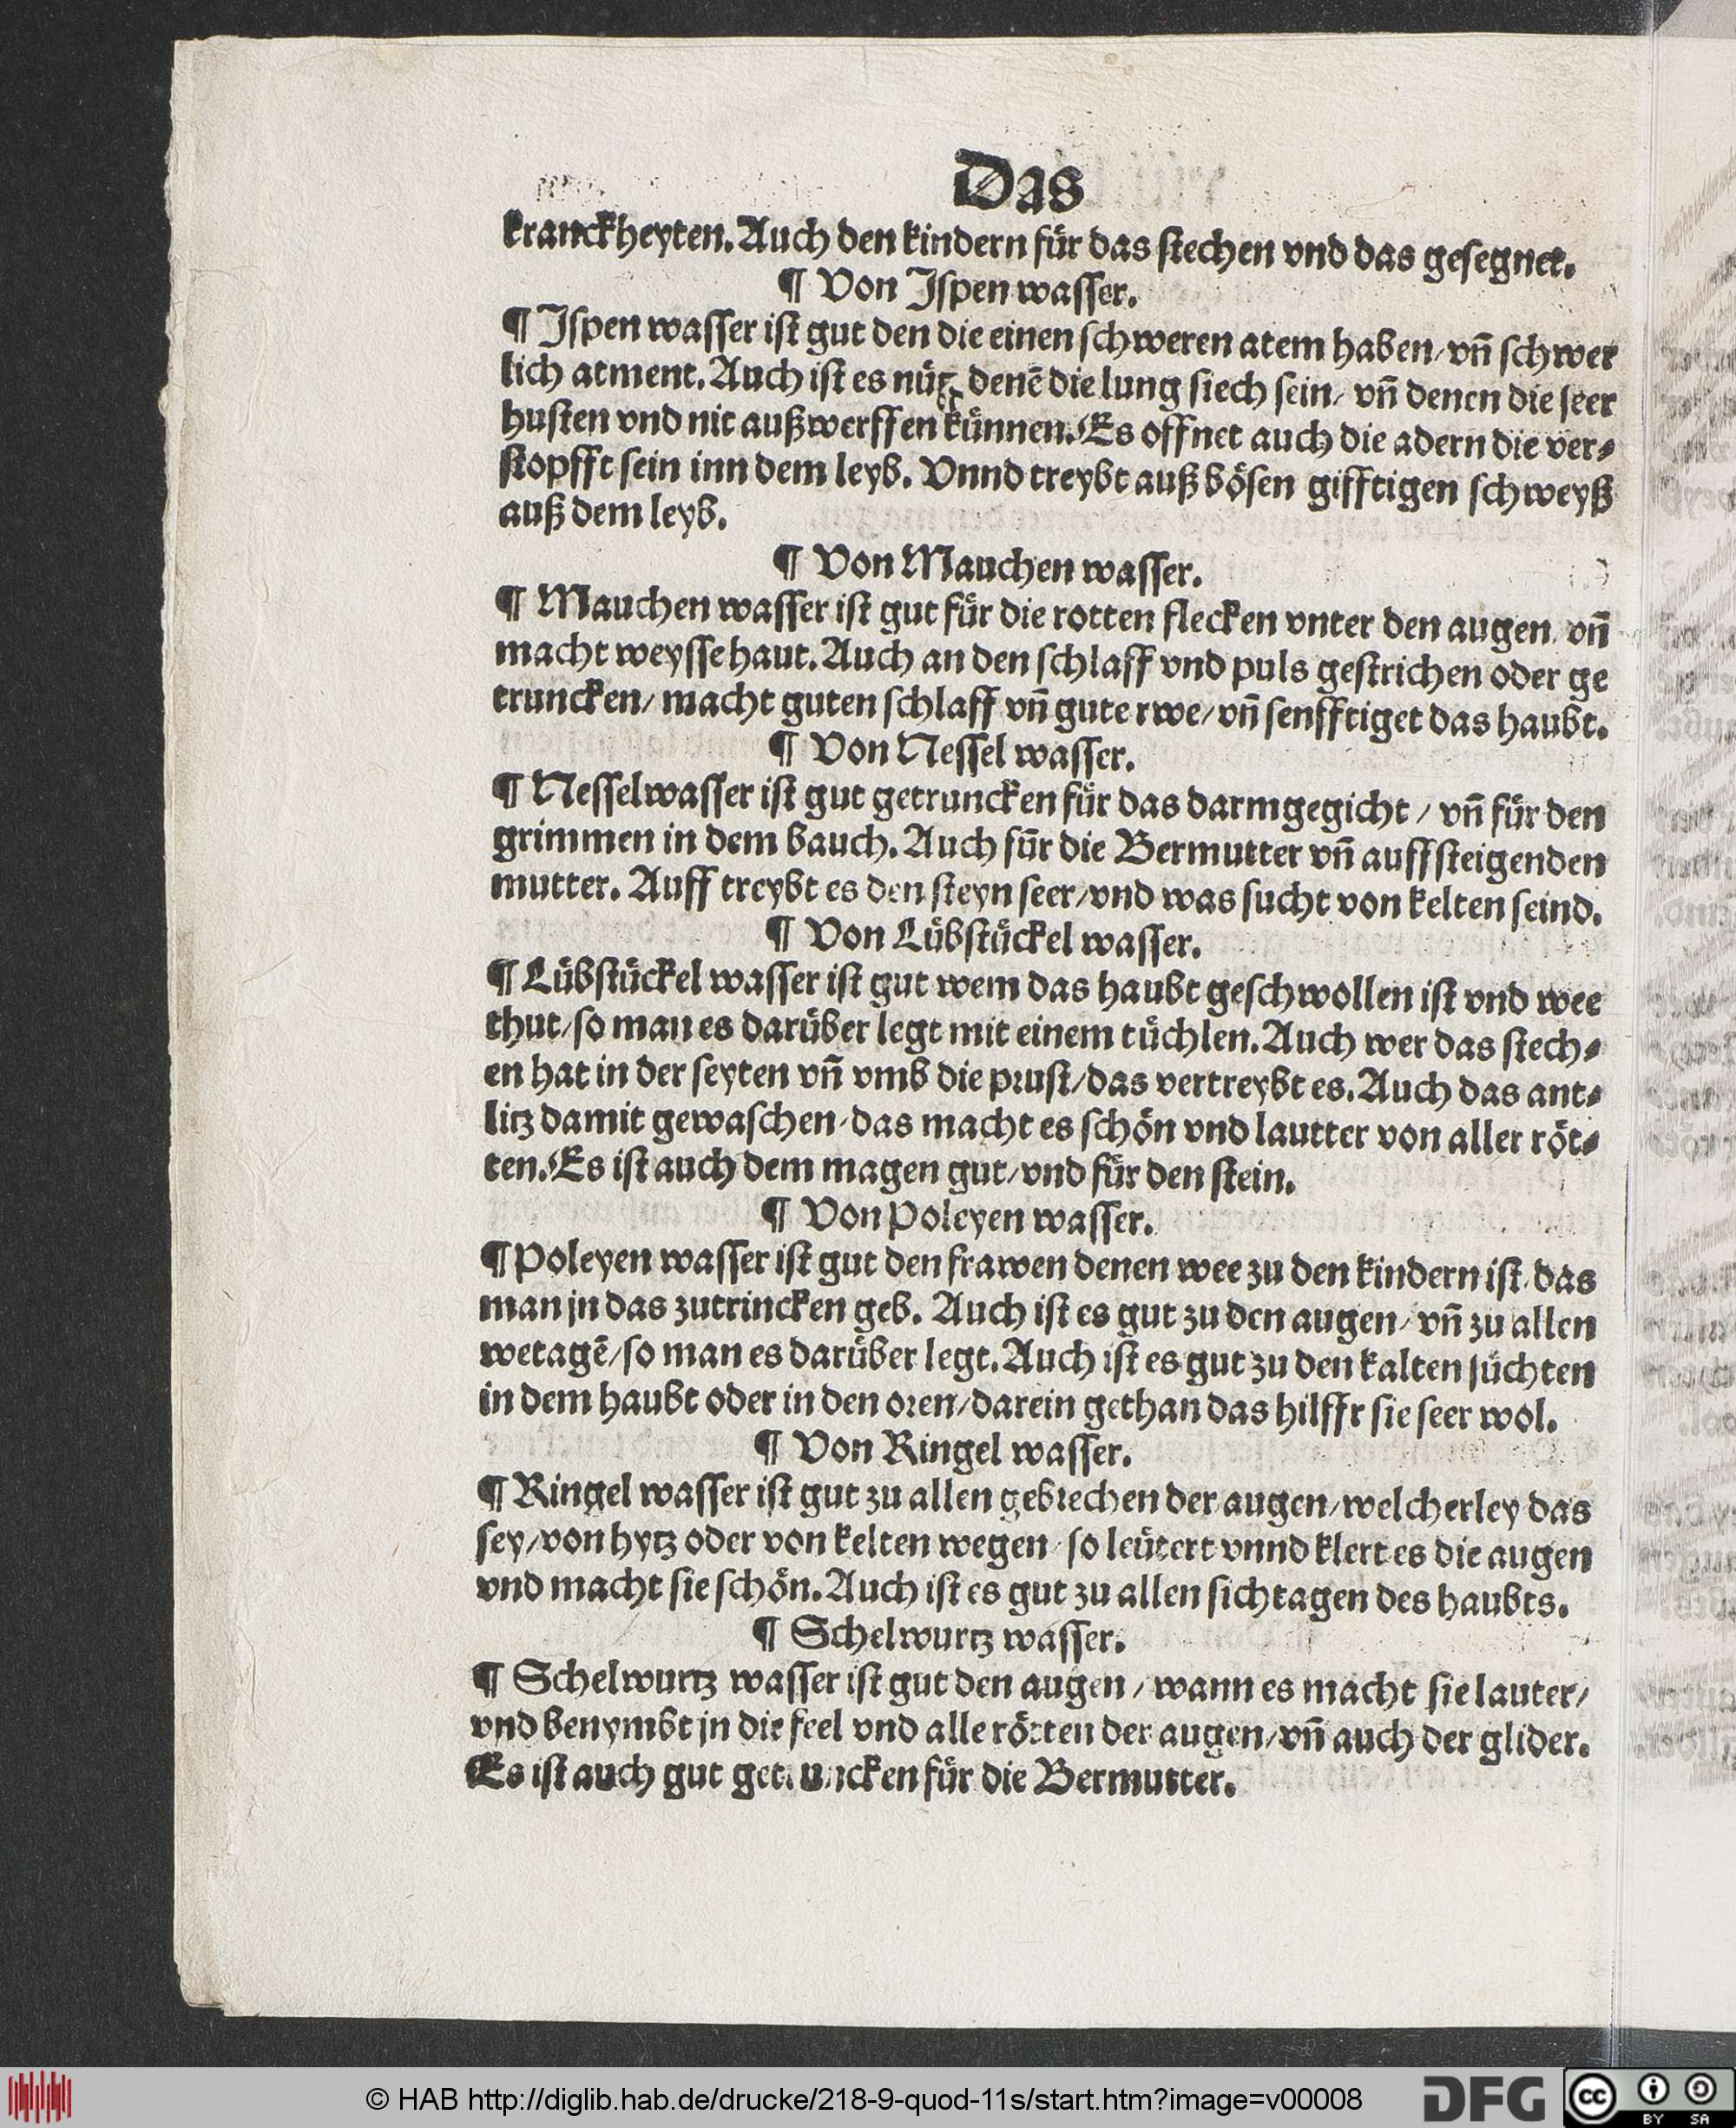 Das
kranckheyten. Auch den kindern für das stechen vnd das gesegnet.
¶ Von Jspen wasser.
¶ Jspen wasser ist gut den die einen schweren atem haben/ vn̄ schwer
lich atment. Auch ist es nütz denē die lung siech sein/ vn̄ denen die seer
husten vnd nit außwerffen künnen. Es offnet auch die adern die ver⸗
stopfft sein inn dem leyb. Vnnd treybt auß bösen gifftigen schweyß
auß dem leyb.
¶ Von Mauchen wasser.
¶ Mauchen wasser ist gut für die rotten flecken vnter den augen/ vn̄
macht weysse haut. Auch an den schlaff vnd puls gestrichen oder ge
truncken/ macht guten schlaff vn̄ gute rwe/ vn̄ senfftiget das haubt.
¶ Von Nessel wasser.
¶ Nesselwasser ist gut getruncken für das darmgegicht/ vn̄ für den
grimmen in dem bauch. Auch für die Bermutter vn̄ auffsteigenden
mutter. Auff treybt es den steyn seer/ vnd was sucht von kelten seind.
¶ Von Lübstückel wasser.
¶ Lübstückel wasser ist gut wem das haubt geschwollen ist vnd wee
thut/ so man es darüber legt mit einem tüchlen. Auch wer das stech⸗
en hat in der seyten vn̄ vmb die prust/ das vertreybt es. Auch das ant⸗
litz damit gewaschen/ das macht es schön vnd lautter von aller röt⸗
ten. Es ist auch dem magen gut/ vnd für den stein.
¶ Von Poleyen wasser.
¶ Poleyen wasser ist gut den frawen denen wee zu den kindern ist/ das
man jn das zutrincken geb. Auch ist es gut zu den augen/ vn̄ zu allen
wetagē/ so man es darüber legt. Auch ist es gut zu den kalten süchten
in dem haubt oder in den oren/ darein gethan das hilffr sie seer wol.
¶ Von Ringel wasser.
¶ Ringel wasser ist gut zu allen gebrechen der augen/ welcherley das
sey/ von hytz oder von kelten wegen/ so leütert vnnd klert es die augen
vnd macht sie schön. Auch ist es gut zu allen sichtagen des haubts.
¶ Schelwurtz wasser.
¶ Schelwurtz wasser ist gut den augen/ wann es macht sie lauter/
vnd benymbt jn die feel vnd alle rötten der augen/ vn̄ auch der glider.
Es ist auch gut getruncken für die Bermutter.
© HAB http://diglib.hab.de/drucke/218-9-quod-11s/start.htm?image=v00008
DFG
cc BY SA